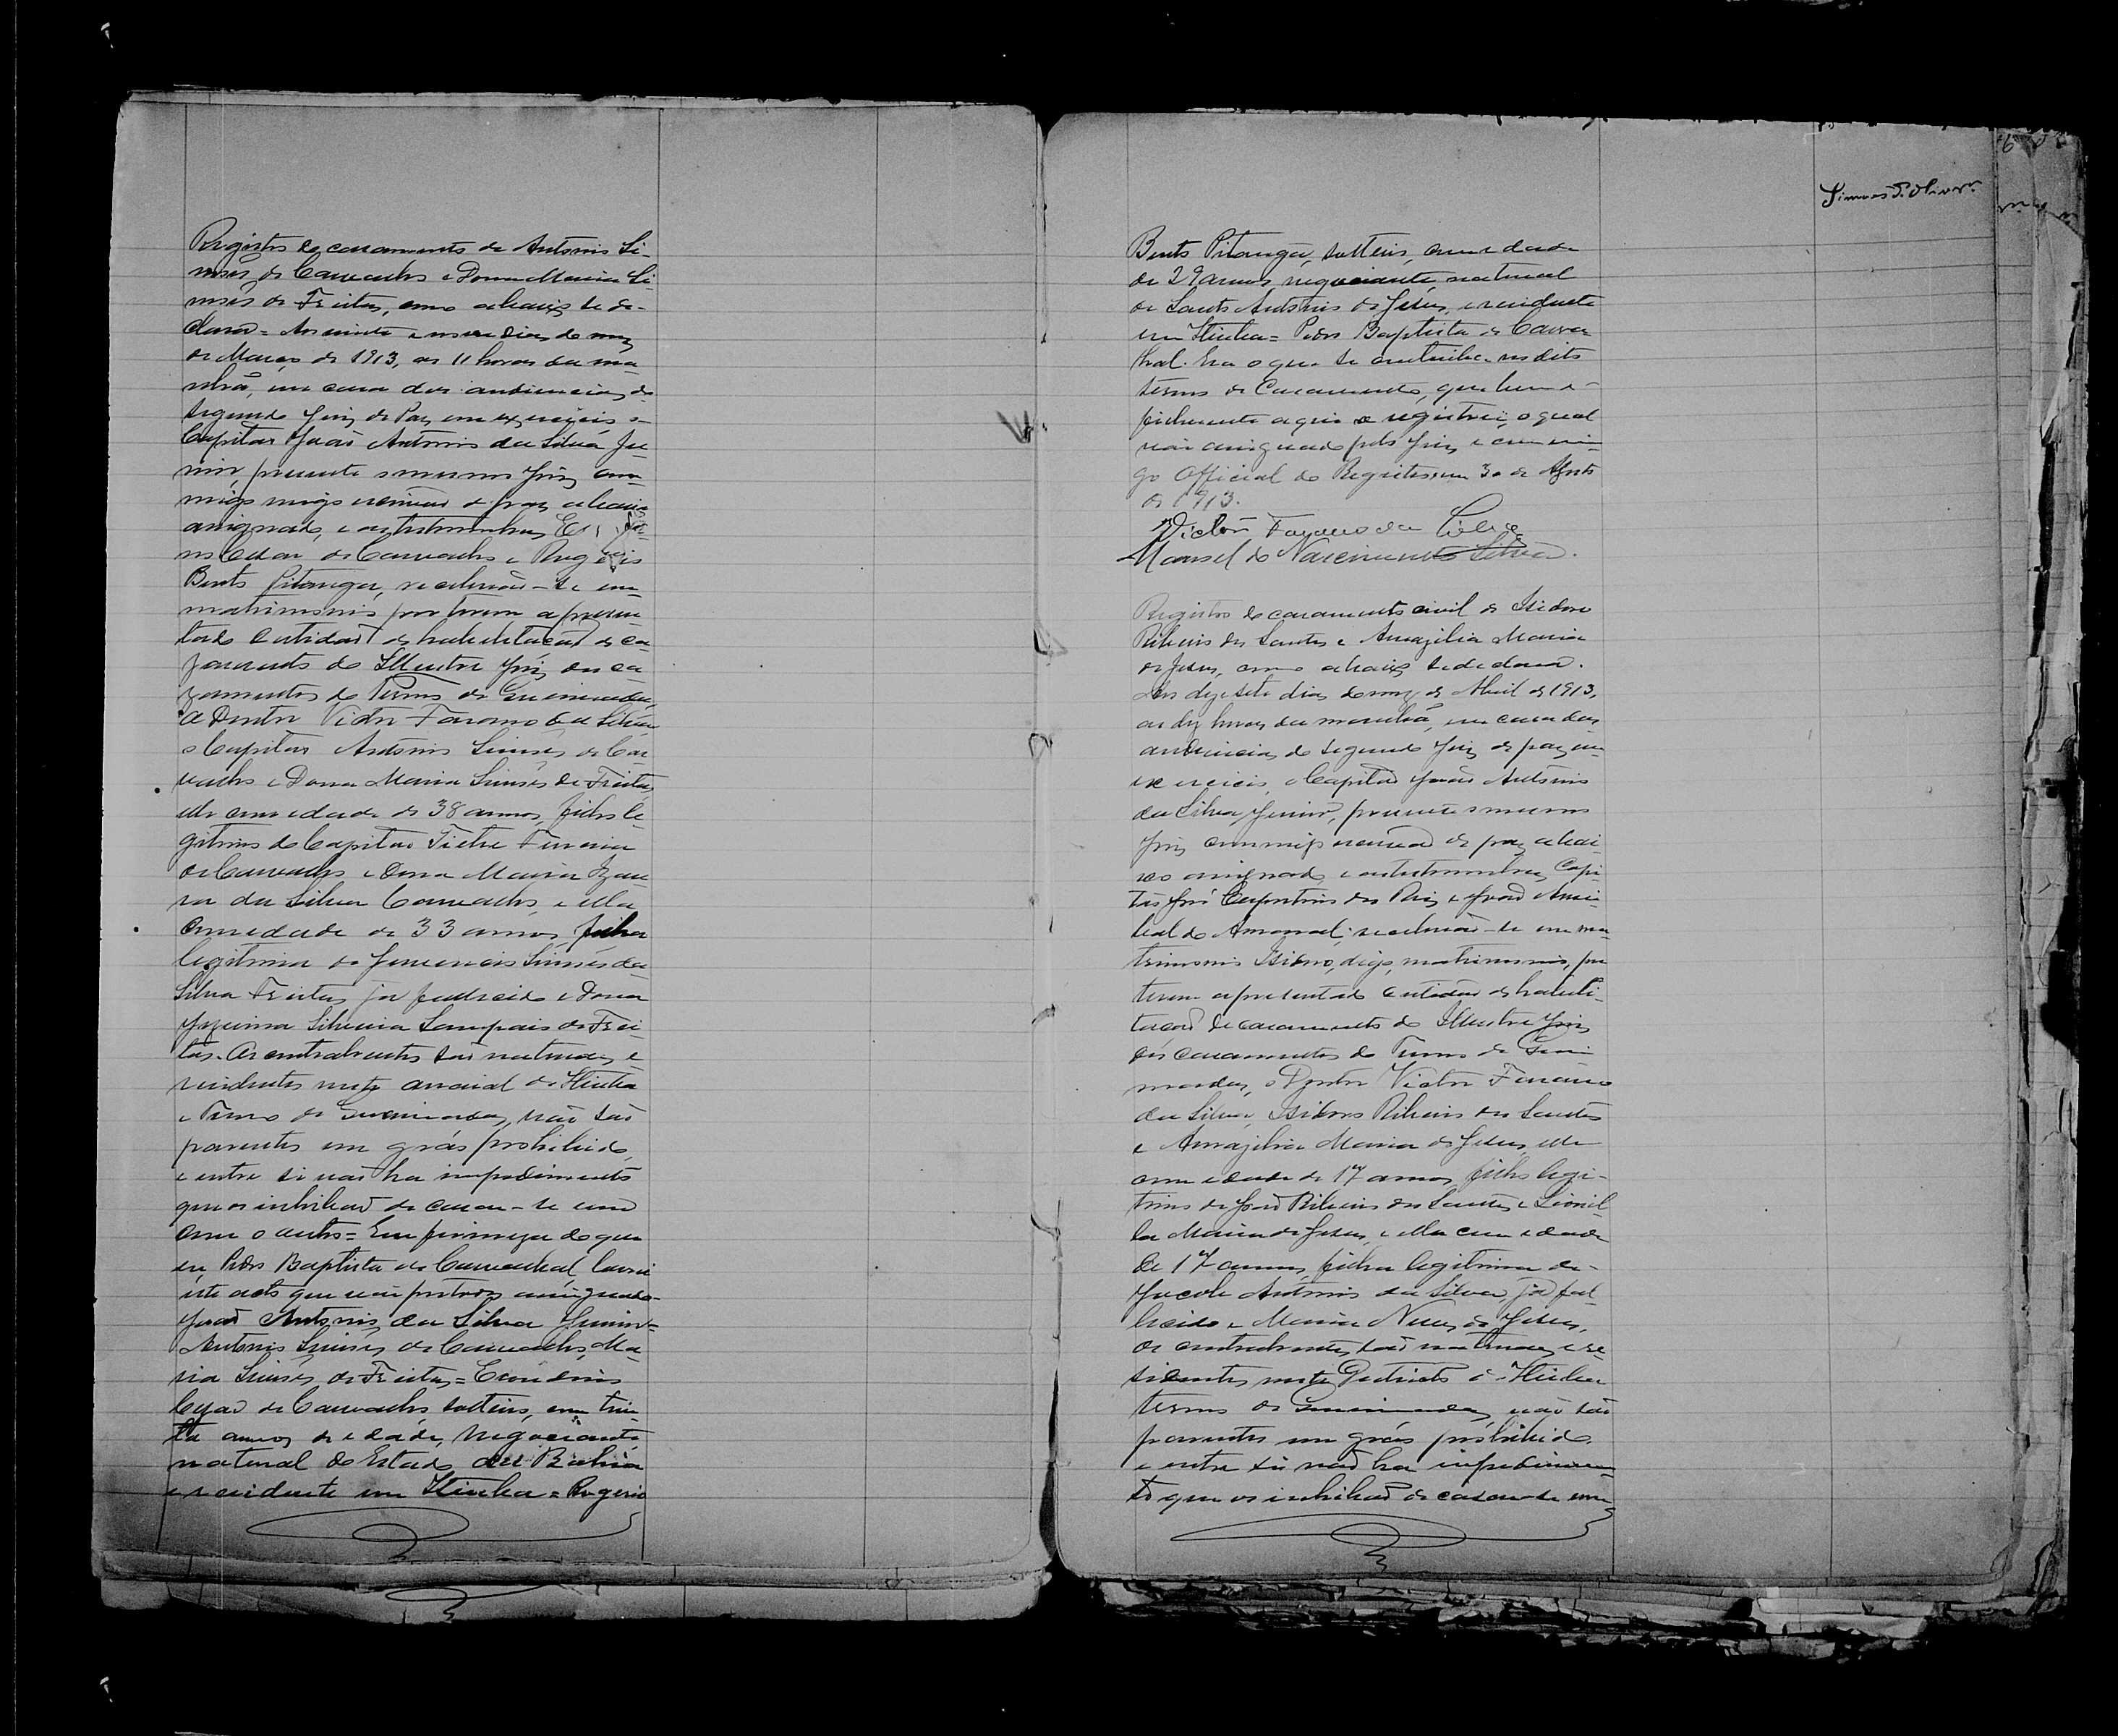 Registro de casamento de Antonio Si-
mões de Carvalho e Dona Maria Si-
mões de Freitas, como abaixo se de-
clara = Aos vinte e nove dias do mez
de Março de 1913, as 11 horas da ma-
nhã, em casa das audiencias do
segundo Juiz de Paz em exercicio o
Capitão João Antonio da Silva Ju-
nior, presente o mesmo Juiz com-
migo escrivão de paz abaixo
assignado, e as testemunhas
Cesar de Carvalho e Rogerio
Bento Pitanga, receberão-se em
matrimonio por terem apresen-
tado certidão de habilitação de ca-
samento do Illustre Juiz dos ca-
zamentos do Termo de
o Doutor Victor da Silva
o Capitão Antonio Simões de Car-
valho e Dona Maria Simões de Freitas,
elle com edade de 38 annos, filho le-
gitimo do Capitão Ferreira
de Carvalho e Dona Maria
da Silva Carvalho, e ella
com edade de 33 annos filha
legitima de Simões da
Silva Freitas já fallecido e Dona
Silveira Sampaio de Frei-
tas. Os contrahentes são naturaes e
residentes neste arraial de
e Termo de não são
parentes em gráo prohibido,
e entre si não ha impedimento
que os inhibão de casar-se um
com o outro = Em firmeza do que
eu, Pedro Baptista de Carvalhal lavrei
este acto que vai por todos assignado-
João Antonio da Silva Junior=
Antonio Simões de Carvalho, Ma-
ria Simões de Freitas =
Cezar de Carvalho solteiro, com trin-
ta annos de edade, Negociante
natural do Estado da Bahia
e residente em = Rogerio
Simões F. Oliver.
Bento Pitanga, solteiro, com edade
de 29 annos, negociante, natural
de Santo Antonio de Jesus, e residente
em = Pedro Baptista de Carva-
lhal. Era o que se continha no dito
termo de Casamento, que bem e
fielmente aqui o registrei, o qual
vai assignado pelo Juiz e commi-
go Official do Registro, em 30 de Agosto
de 1913.
Victor da Silva
Manoel do Nascimento Silva.
Registro de casamento civil de Isidoro
Ribeiro dos Santos e Amazilia Maria
de Jesus, como abaixo se declara.
Aos dezesete dias do mez de Abril de 1913,
as dez horas da manhã, em casa das
audiencias do segundo Juiz de paz em
exercicio, o Capitão João Antonio
da Silva Junior, presente o mesmo
Juiz commigo escrivão de paz abai-
xo assignado, e as testemunhas, Capi-
tão José dos Reis e João
do Amaral; receberão-se em ma-
trimonio Isidoro, digo, matrimonio, por
terem apresentado certidão de habili-
tação de casamento do Illustre Juiz
dos casamentos do Termo de
o Doutor Victor
da Silva, Isidoro Ribeiro dos Santos
e Amazilia Maria de Jesus, elle
com edade de 17 annos, filho legi-
timo de José Ribeiro dos Santos e Leonil-
la Maria de Jesus, e ella com edade
de 17 annos, filha legitima de
Jacob Antonio da Silva, já fal-
lecido e Maria Neves de Jesus,
os contrahentes são naturaes e re-
sidentes neste Districto
termo de não são
parentes em gráo prohibido.
e entre si não ha impedimen-
to que os inhibão de casar-se um